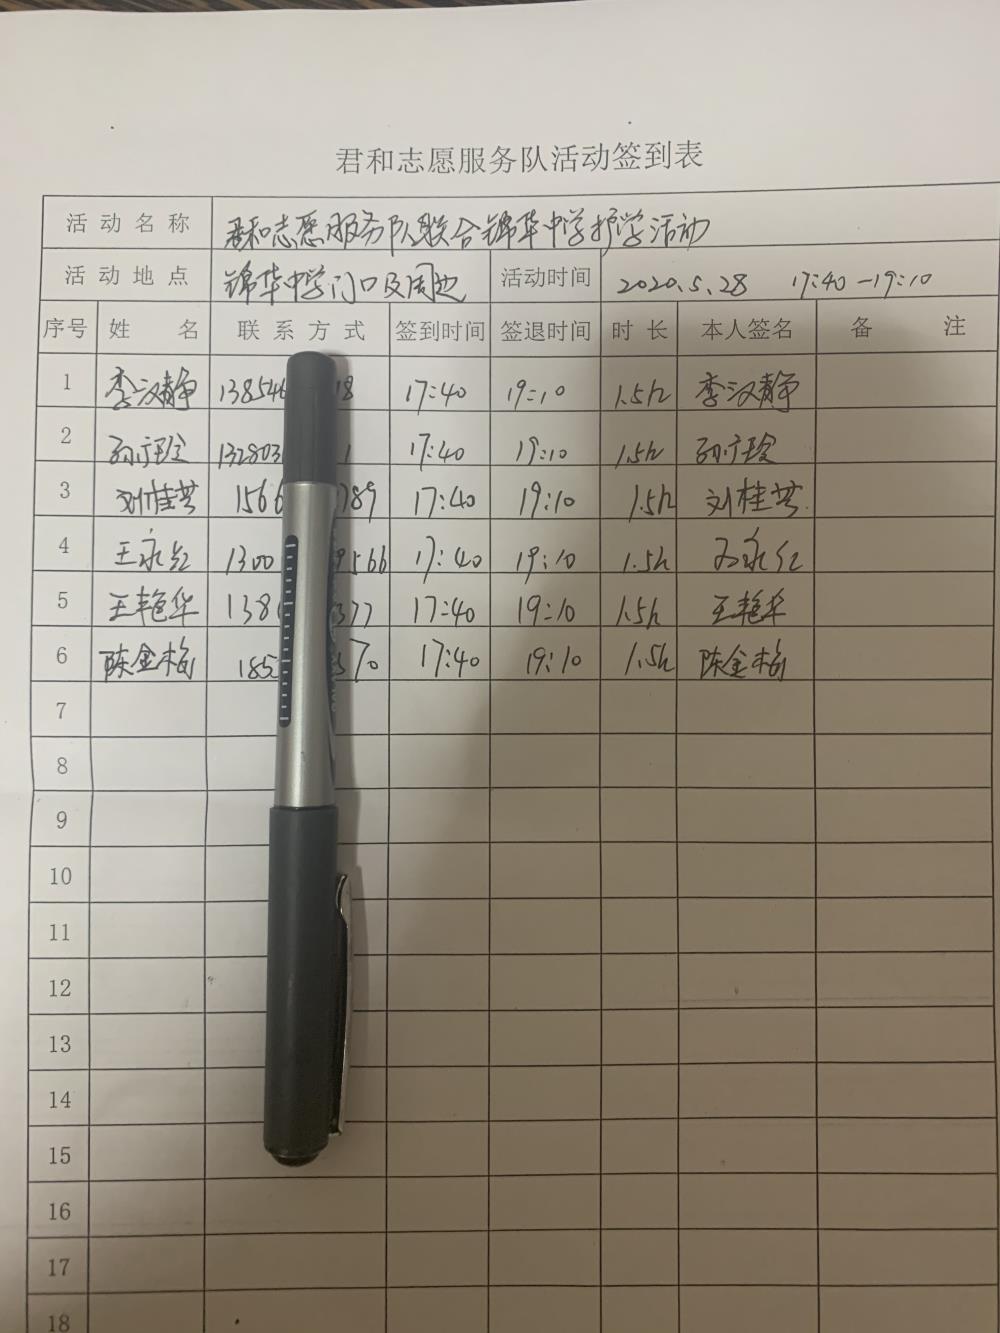 君和志愿服务队活动签到表
活动名称 君和志愿服务队联合锦华中学护学活动
活动地点 锦华中学门口及周边 活动时间 2020.5.28 17:40-19:10
序号 姓名 联系方式 签到时间 签退时间 时长 本人签名 备注
1 李汉静 138546 18 17:40 19:10 1.5h 李汉静
2 132803 1 17:40 19:10 1.5h
3 刘桂芸 156 789 17:40 19:10 1.5h 刘桂芸
4 王永红 1300 9566 17:40 19:10 1.5h 王永红
5 王艳华 138 377 17:40 19:10 1.5h 王艳华
6 陈金梅 185 570 17:40 19:10 1.5h 陈金梅
7
8
9
10
11
12
13
14
15
16
17
18